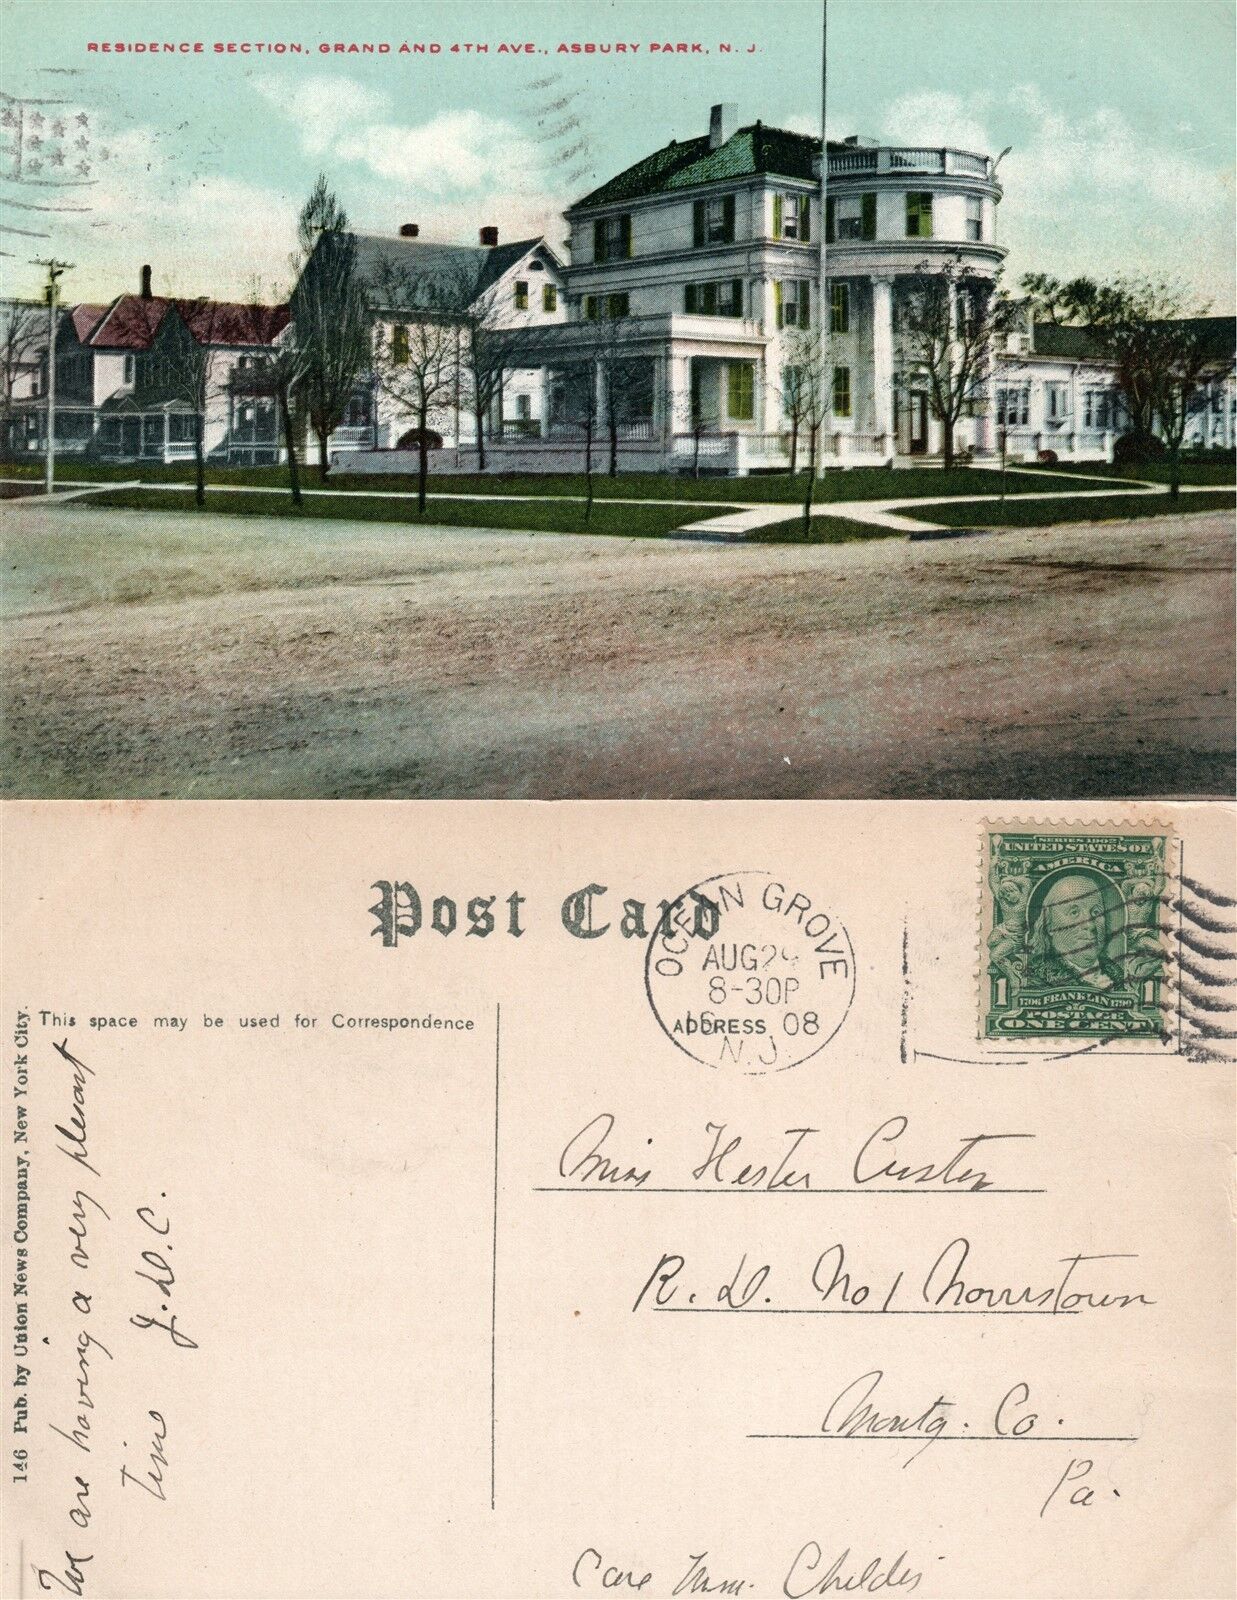 RESIDENCE SECTION, GRAND AND 4TH AVE., ASBURY PARK, N. J.
Post Card
OCEAN GROVE
AUG
8-30P
08
N.J.
SERIES 1902
UNITED STATES OF
AMERICA
1 1
1706 FRANKLIN 1790
POSTAGE
ONE CENT
This space may be used for Correspondence
ADDRESS
146 Pub. by Union News Company, New York City.
We are having a very plesant
Time
J.D.C.
Miss Hester Custer
R. D. No 1 Norristown
Montg. Co.
Pa.
Care Wm. Childs